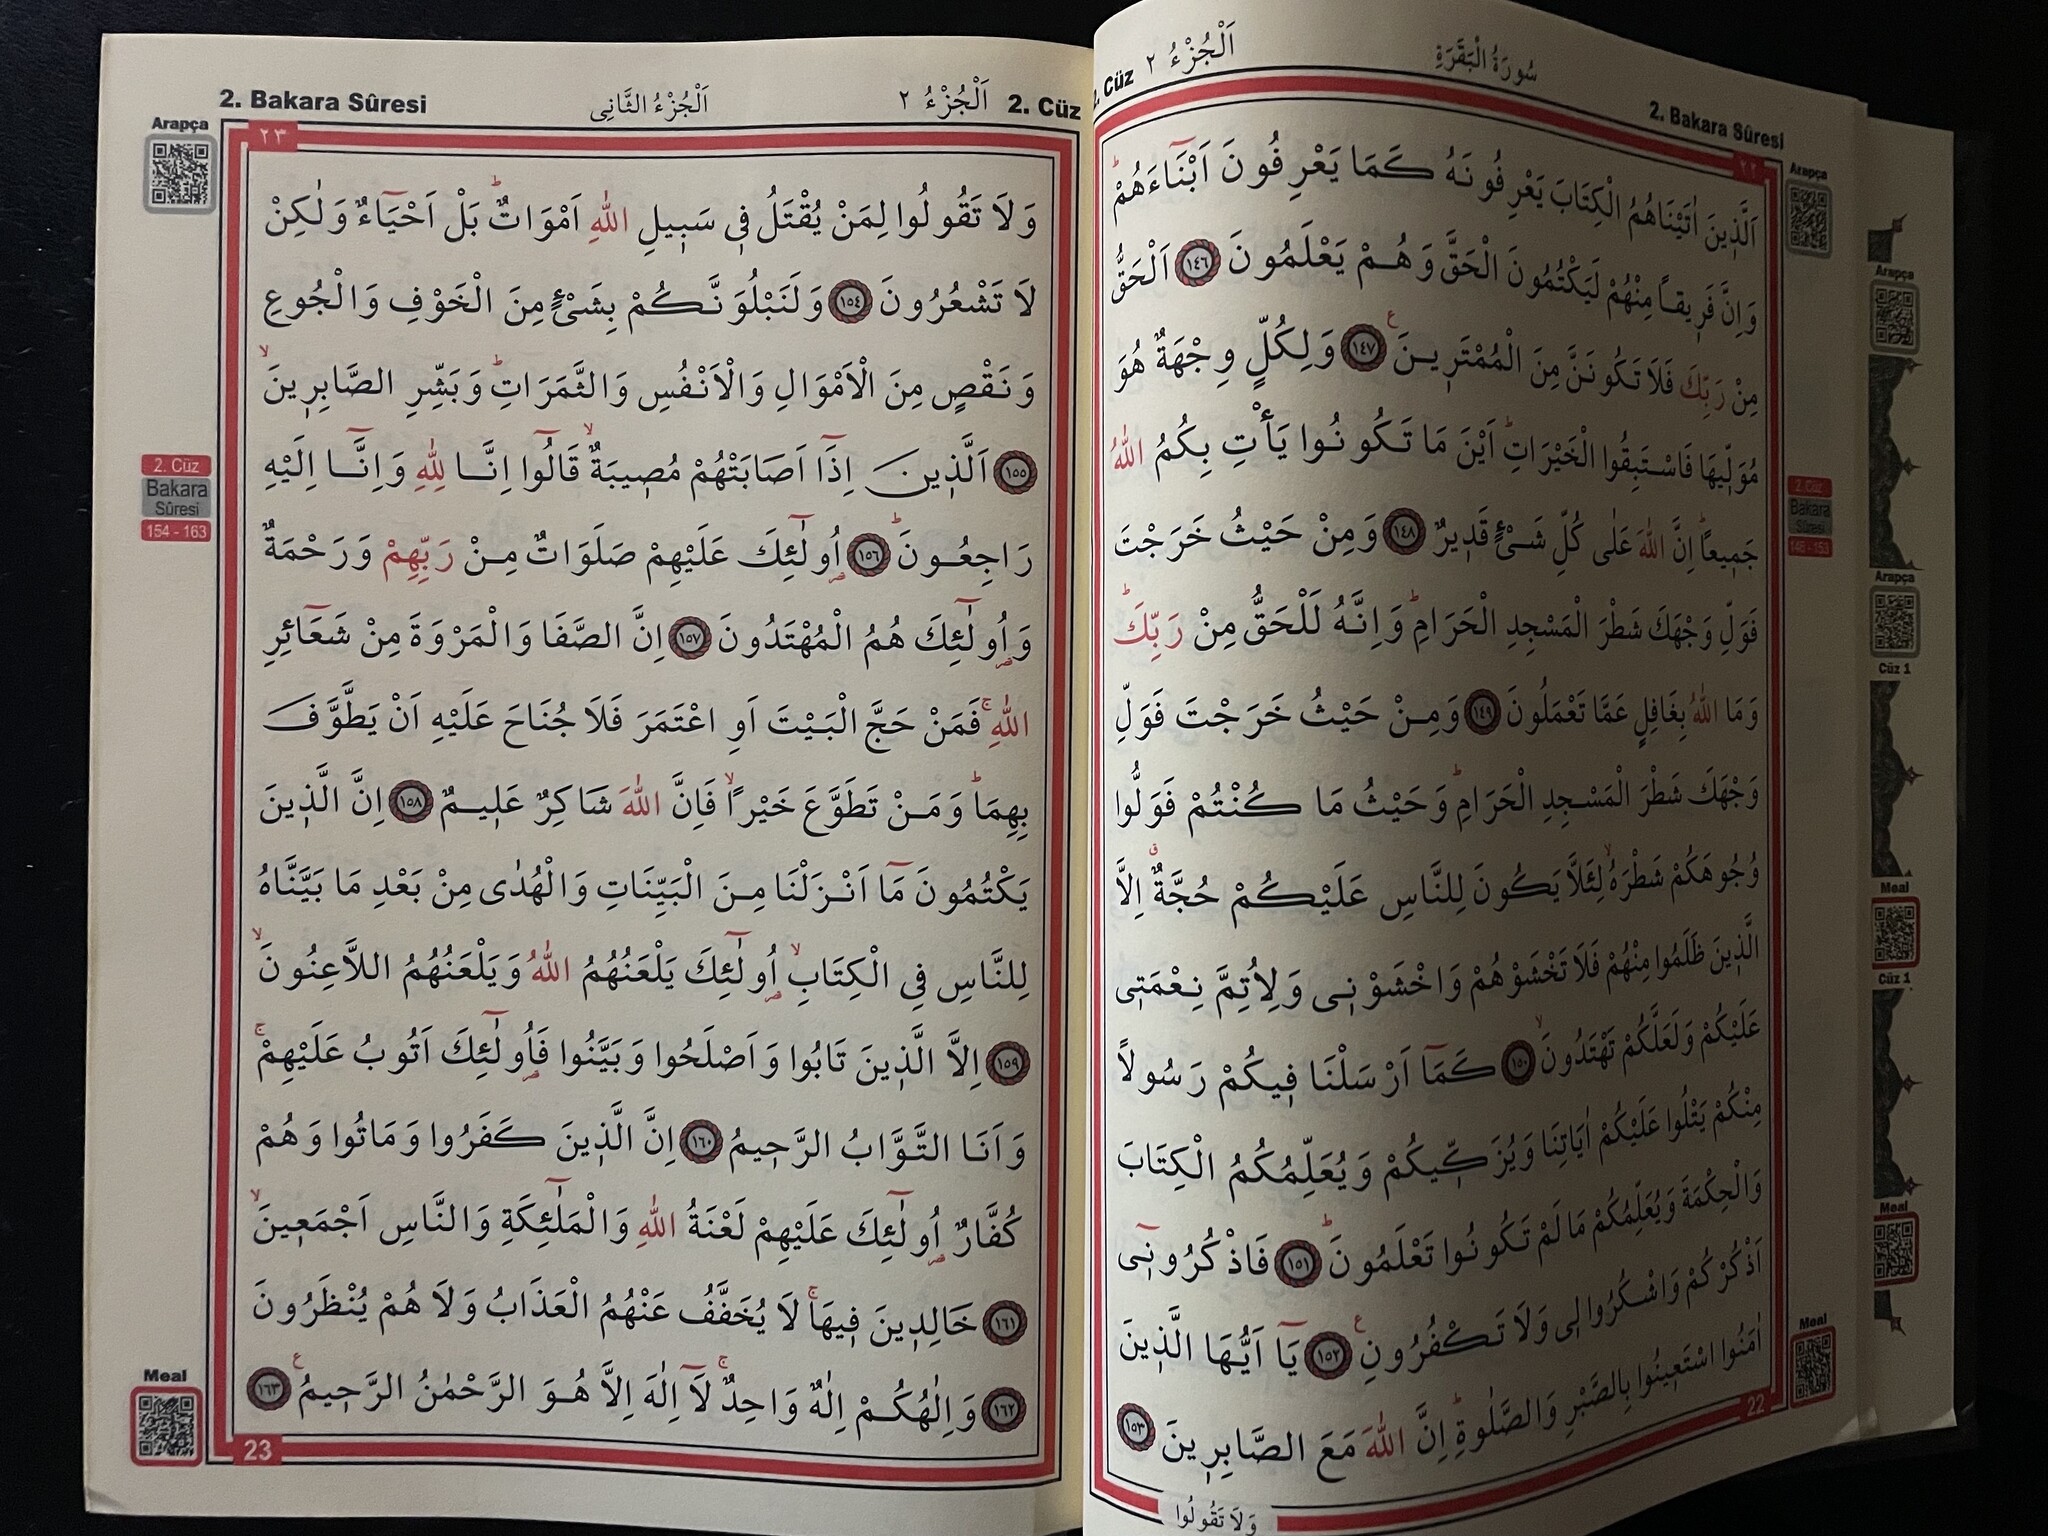 2. Cüz
اَلْجُزْءُ ٢
سُورَةُ الْبَقَرَةِ
2. Bakara Sûresi
٢٢
اَلَّذ۪ينَ اٰتَيْنَاهُمُ الْكِتَابَ يَعْرِفُونَهُ كَمَا يَعْرِفُونَ اَبْنَٓاءَهُمْۜ
وَاِنَّ فَر۪يقاً مِنْهُمْ لَيَكْتُمُونَ الْحَقَّ وَهُمْ يَعْلَمُونَ ﴿١٤٦﴾ اَلْحَقُّ
مِنْ رَبِّكَ فَلَا تَكُونَنَّ مِنَ الْمُمْتَر۪ينَ۟ ﴿١٤٧﴾ وَلِكُلٍّ وِجْهَةٌ هُوَ
مُوَلّ۪يهَا فَاسْتَبِقُوا الْخَيْرَاتِۜ اَيْنَ مَا تَكُونُوا يَأْتِ بِكُمُ اللّٰهُ
جَم۪يعاًۜ اِنَّ اللّٰهَ عَلٰى كُلِّ شَيْءٍ قَد۪يرٌ ﴿١٤٨﴾ وَمِنْ حَيْثُ خَرَجْتَ
فَوَلِّ وَجْهَكَ شَطْرَ الْمَسْجِدِ الْحَرَامِۜ وَاِنَّهُ لَلْحَقُّ مِنْ رَبِّكَۜ
وَمَا اللّٰهُ بِغَافِلٍ عَمَّا تَعْمَلُونَ ﴿١٤٩﴾ وَمِنْ حَيْثُ خَرَجْتَ فَوَلِّ
وَجْهَكَ شَطْرَ الْمَسْجِدِ الْحَرَامِۜ وَحَيْثُ مَا كُنْتُمْ فَوَلُّوا
وُجُوهَكُمْ شَطْرَهُۙ لِئَلَّا يَكُونَ لِلنَّاسِ عَلَيْكُمْ حُجَّةٌۗ اِلَّا
الَّذ۪ينَ ظَلَمُوا مِنْهُمْ فَلَا تَخْشَوْهُمْ وَاخْشَوْن۪ى وَلِاُتِمَّ نِعْمَت۪ى
عَلَيْكُمْ وَلَعَلَّكُمْ تَهْتَدُونَۙ ﴿١٥٠﴾ كَمَٓا اَرْسَلْنَا ف۪يكُمْ رَسُولاً
مِنْكُمْ يَتْلُوا عَلَيْكُمْ اٰيَاتِنَا وَيُزَكّ۪يكُمْ وَيُعَلِّمُكُمُ الْكِتَابَ
وَالْحِكْمَةَ وَيُعَلِّمُكُمْ مَا لَمْ تَكُونُوا تَعْلَمُونَۜ ﴿١٥١﴾ فَاذْكُرُون۪ٓى
اَذْكُرْكُمْ وَاشْكُرُوا ل۪ى وَلَا تَكْفُرُونِ۟ ﴿١٥٢﴾ يَٓا اَيُّهَا الَّذ۪ينَ
اٰمَنُوا اسْتَع۪ينُوا بِالصَّبْرِ وَالصَّلٰوةِۜ اِنَّ اللّٰهَ مَعَ الصَّابِر۪ينَ ﴿١٥٣﴾
22
وَلَا تَقُولُوا
Arapça
2. Cüz
Bakara
Sûresi
146 - 153
Meal
Arapça
Arapça
Cüz 1
Meal
Cüz 1
Meal
2. Bakara Sûresi
اَلْجُزْءُ الثَّانِى
اَلْجُزْءُ ٢
2. Cüz
٢٣
وَلَا تَقُولُوا لِمَنْ يُقْتَلُ ف۪ى سَب۪يلِ اللّٰهِ اَمْوَاتٌۜ بَلْ اَحْيَٓاءٌ وَلٰكِنْ
لَا تَشْعُرُونَ ﴿١٥٤﴾ وَلَنَبْلُوَنَّكُمْ بِشَيْءٍ مِنَ الْخَوْفِ وَالْجُوعِ
وَنَقْصٍ مِنَ الْاَمْوَالِ وَالْاَنْفُسِ وَالثَّمَرَاتِۜ وَبَشِّرِ الصَّابِر۪ينَۙ
﴿١٥٥﴾ اَلَّذ۪ينَ اِذَٓا اَصَابَتْهُمْ مُص۪يبَةٌۙ قَالُٓوا اِنَّا لِلّٰهِ وَاِنَّٓا اِلَيْهِ
رَاجِعُونَۜ ﴿١٥٦﴾ اُو۬لٰٓئِكَ عَلَيْهِمْ صَلَوَاتٌ مِنْ رَبِّهِمْ وَرَحْمَةٌ
وَاُو۬لٰٓئِكَ هُمُ الْمُهْتَدُونَ ﴿١٥٧﴾ اِنَّ الصَّفَا وَالْمَرْوَةَ مِنْ شَعَٓائِرِ
اللّٰهِۚ فَمَنْ حَجَّ الْبَيْتَ اَوِ اعْتَمَرَ فَلَا جُنَاحَ عَلَيْهِ اَنْ يَطَّوَّفَ
بِهِمَاۜ وَمَنْ تَطَوَّعَ خَيْراًۙ فَاِنَّ اللّٰهَ شَاكِرٌ عَل۪يمٌ ﴿١٥٨﴾ اِنَّ الَّذ۪ينَ
يَكْتُمُونَ مَٓا اَنْزَلْنَا مِنَ الْبَيِّنَاتِ وَالْهُدٰى مِنْ بَعْدِ مَا بَيَّنَّاهُ
لِلنَّاسِ فِى الْكِتَابِۙ اُو۬لٰٓئِكَ يَلْعَنُهُمُ اللّٰهُ وَيَلْعَنُهُمُ اللَّاعِنُونَۙ
﴿١٥٩﴾ اِلَّا الَّذ۪ينَ تَابُوا وَاَصْلَحُوا وَبَيَّنُوا فَاُو۬لٰٓئِكَ اَتُوبُ عَلَيْهِمْۚ
وَاَنَا التَّوَّابُ الرَّح۪يمُ ﴿١٦٠﴾ اِنَّ الَّذ۪ينَ كَفَرُوا وَمَاتُوا وَهُمْ
كُفَّارٌ اُو۬لٰٓئِكَ عَلَيْهِمْ لَعْنَةُ اللّٰهِ وَالْمَلٰٓئِكَةِ وَالنَّاسِ اَجْمَع۪ينَۙ
﴿١٦١﴾ خَالِد۪ينَ ف۪يهَاۚ لَا يُخَفَّفُ عَنْهُمُ الْعَذَابُ وَلَا هُمْ يُنْظَرُونَ
﴿١٦٢﴾ وَاِلٰهُكُمْ اِلٰهٌ وَاحِدٌۚ لَٓا اِلٰهَ اِلَّا هُوَ الرَّحْمٰنُ الرَّح۪يمُ۟ ﴿١٦٣﴾
23
Arapça
2. Cüz
Bakara
Sûresi
154 - 163
Meal